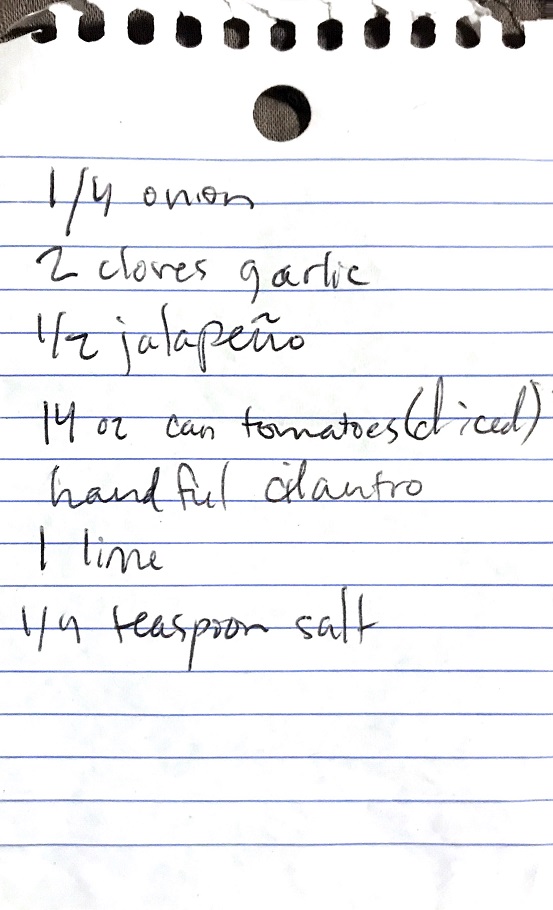 1/4 onion
2 cloves garlic
1/2 jalapeño
14 oz can tomatoes (diced)
handful cilantro
1 lime
1/4 teaspoon salt